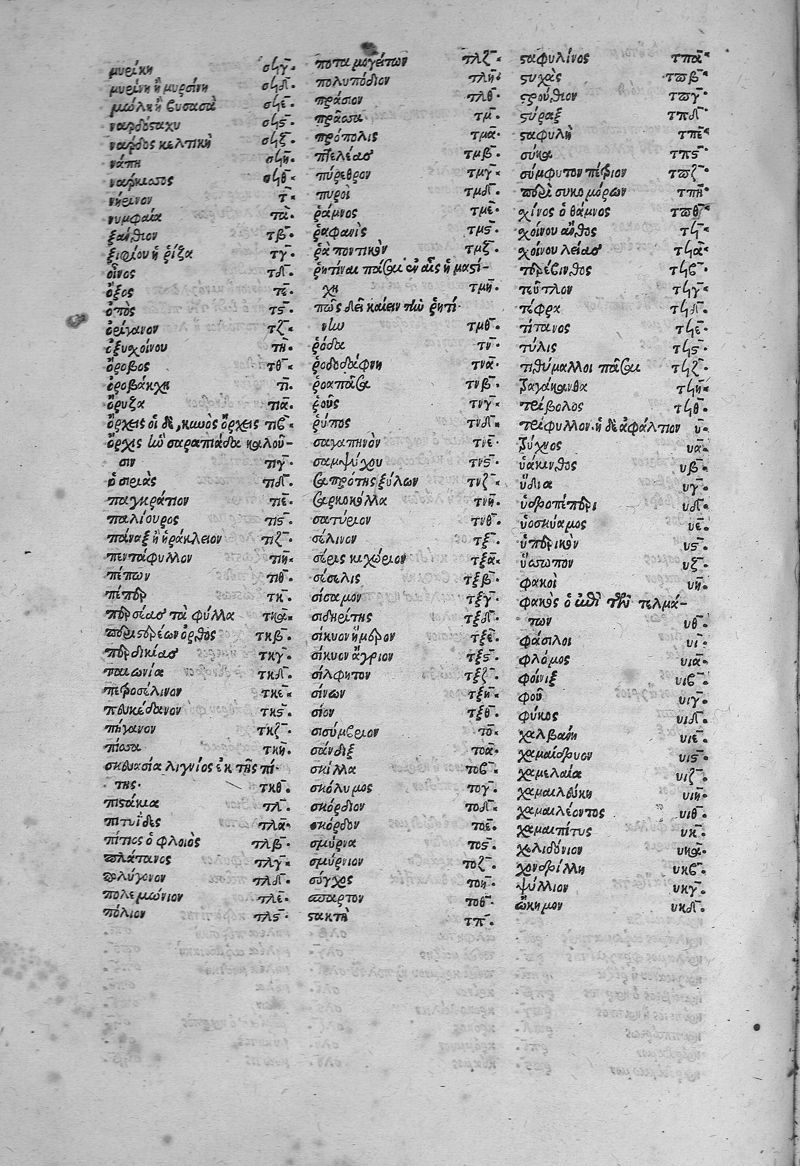 μυρίκη σϟγ
μυρίνη ἢ μυρσίνη σϟδ
μώλη ἢ σϟε
ναρδόσταχυ σϟς
νάρδος κελτικὴ σϟζ
νάπη σϟη
νάρκισσος σϟθ
νήρινον τ
νυμφαία τα
ξάνθιον τβ
ξιφίου ἡ ῥίζα τγ
οἶνος τδ
ὄξος τε
ὀπὸς τς
ὀρίγανον τζ
ὀξυσχοίνου τη
ὄροβος τθ
ὀροβάκχη τι
ὄρυζα τια
ὄρχεις οἱ δὲ, κυνὸς ὄρχεις τιβ
ὄρχις ὃν σαραπιάδα καλοῦ-
σιν τιγ
ὀστριὰς τιδ
παγκράτιον τιε
παλίουρος τις
πάναξ ἢ ἡράκλειον τιζ
πεντάφυλλον τιη
πέπων τιθ
πέπερι τκ
περσέας τὰ φύλλα τκα
περιστερέων ὀρθὸς τκβ
περδικίας τκγ
παιωνία τκδ
πετροσέλινον τκε
πευκέδανον τκς
πήγανον τκζ
πίσσα τκη
σκευασία λιγνύος ἐκ τῆς πί-
της. τκθ
πιστάκια τλ
πιτυΐδες τλα
πίτυος ὁ φλοιὸς τλβ
πλάτανος τλγ
πολύγονον τλδ
πολεμώνιον τλε
πόλιον τλς
ποταμογείτων τλζ
πολυπόδιον τλη
πράσιον τλθ
πράσσα τμ
πρόπολις τμα
πτελέας τμβ
πύρεθρον τμγ
πυροὶ τμδ
ῥάμνος τμε
ῥαφανὶς τμς
ῥὰ ποντικὸν τμζ
ῥητίναι πᾶσαι ἐν αἷς ἡ μαστί-
χη τμη
πῶς δεῖ καίειν τὴν ῥητί-
νην τμθ
ῥόδα τν
ῥοδοδάφνη τνα
ῥοα πᾶσα τνβ
ῥοῦς τνγ
ῥύπος τνδ
σαγαπηνὸν τνε
σαμψύχου τνς
σαπρότης ξύλων τνζ
σαρκοκόλλα τνη
σατύριον τνθ
σέλινον τξ
σέρις κιχώριον τξα
σέσελις τξβ
σίσαμον τξγ
σιδηρίτης τξδ
σίκυον ἥμερον τξε
σίκυον ἄγριον τξς
σίλφητον τξζ
σίνων τξη
σίον τξθ
σισύμβριον το
σάνδιξ τοα
σκίλλα τοβ
σκόλυμος τογ
σκόρδιον τοδ
σκόρδον τοε
σμύρνα τος
σμύρνιον τοζ
σόγχος τοη
σπάρτον τοθ
στακτὴ τπ
σταφυλίνος τπα
στυχὰς τπβ
στρούθιον τπγ
στύραξ τπδ
σταφυλὴ τπε
σύκα τπς
σύμφυτον πέτριον τπζ
περὶ συκομόρων τπη
σχίνος ὁ θάμνος τπθ
σχοίνου ἄνθος τϟ
σχοίνου λείας τϟα
τερέβινθος τϟβ
τεῦτλον τϟγ
τέφρα τϟδ
τίτανος τϟε
τύλις τϟς
τιθύμαλλοι πᾶσαι τϟζ
τραγάκανθα τϟη
τρίβολος τϟθ
τρίφυλλον. ἡ δὲ ἀσφάλτιον υ
τρύχνος υα
ὑάκινθος υβ
ὕδια υγ
ὑδροπέπερι υδ
ὑοσκύαμος υε
ὑπερικὸν υς
ὕσσωπον υζ
φακοὶ υη
φακὸς ὁ ἐπὶ τῶν τελμά-
των υθ
φάσιλοι υι
φλόμος υια
φοίνιξ υιβ
φοῦ υιγ
φύκος υιδ
χαλβάνη υιε
χαμαίδρυον υις
χαμελαία υιζ
χαμαιλεύκη υιη
χαμαιλέοντος υιθ
χαμαιπίτυς υκ
χελιδόνιον υκα
χονδρίλλη υκβ
ψύλλιον υκγ
ὤκημον υκδ